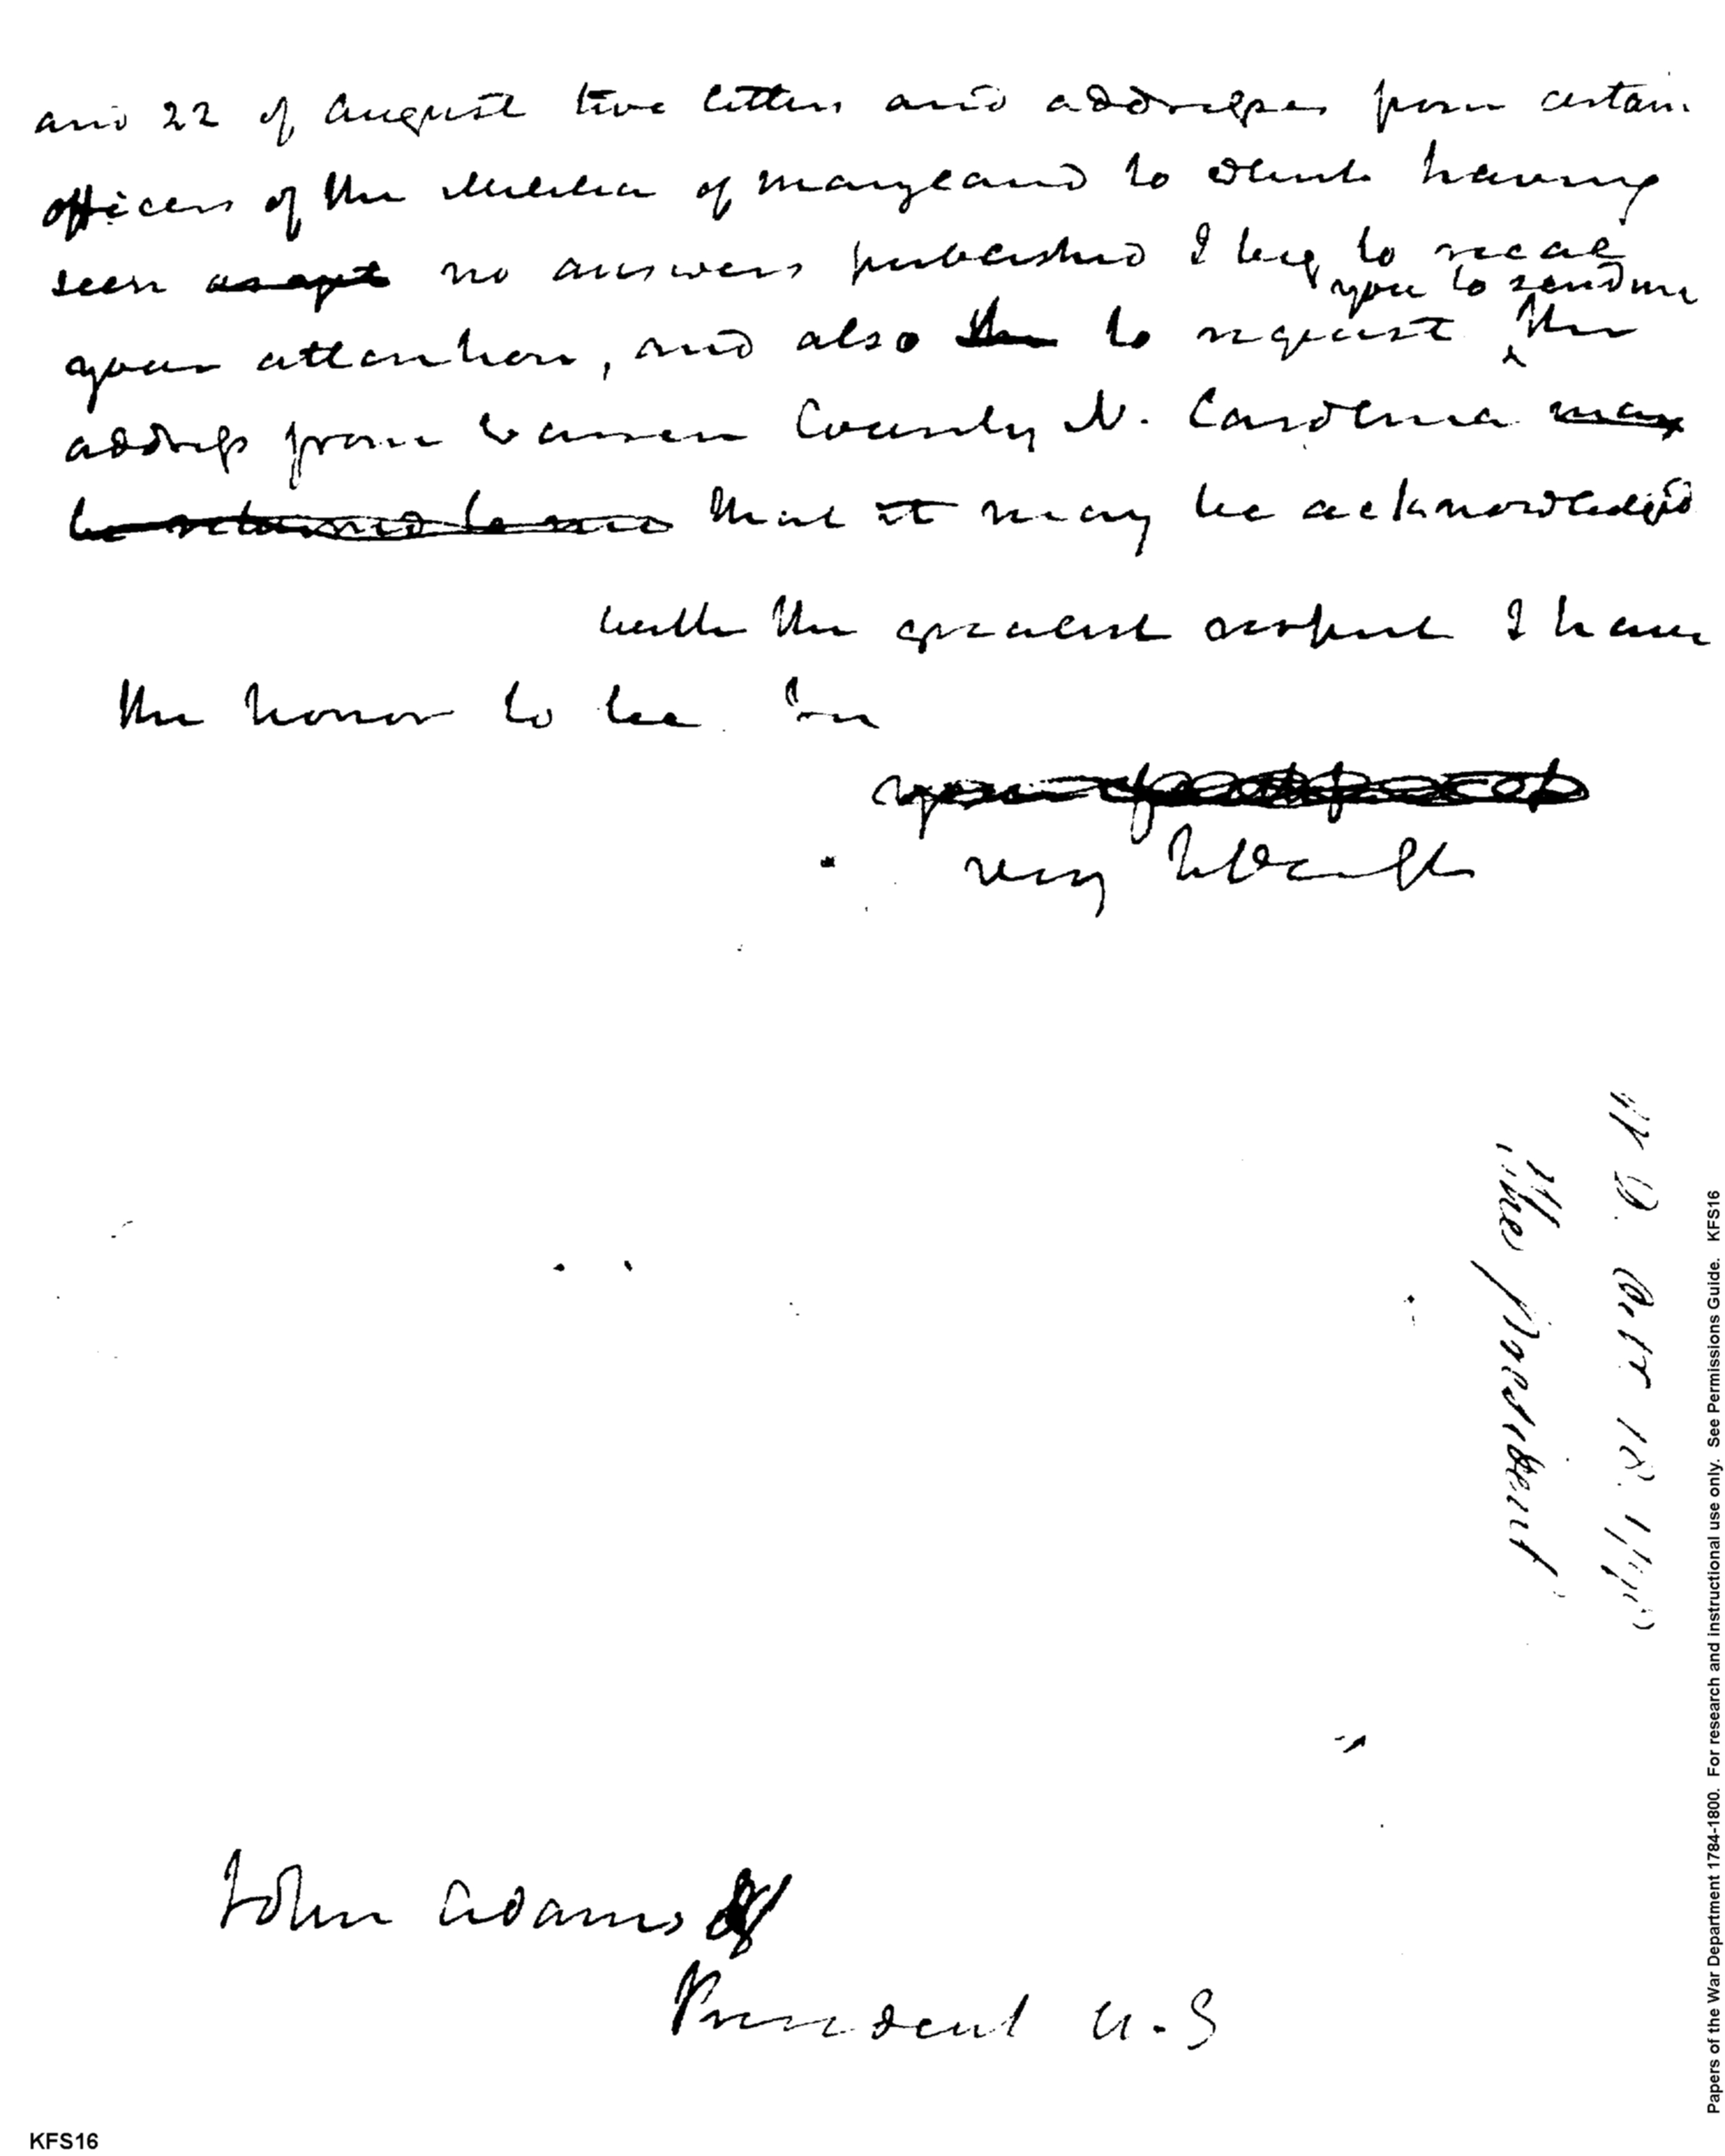 and 22 of August two letters and addresses from certain
officers of the Militia of Maryland to which having
seen no answers published I beg to recall
you to send me
your attention, and also the to request ^ the
address from Warren County N. Carolina may
be returned to me that it may be acknowledged
with the greatest respect I have
the honor to be Sir
your
very Hble
The President
W D. 1798
John Adams
President U.S
Papers of the War Department 1784-1800. For research and instructional use only. See Permissions Guide. KFS16
KFS16